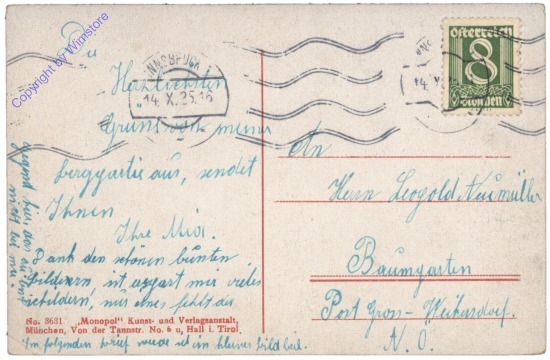 Copyright by Wimstore
INNSBRUCK
14. X. 25. 16
14. X
österreich
8
Groschen
Die
Herzlichsten
Grüsse von meiner
Bergpartie aus, sendet
Ihnen
Ihre Mia.
Dank den schönen bunten
Bildern, ist
mir vieles
mir eines fehlt
Im folgenden Brief werde ich ein kleines Bild bei
nicht bei mir
An
Herrn Leopold Neumüller
Baumgarten
Post Gross-Weikersdorf.
N. Ö.
No. 3631. „Monopol" Kunst- und Verlagsanstalt,
München, Von der Tannstr. No. 6 u. Hall i. Tirol